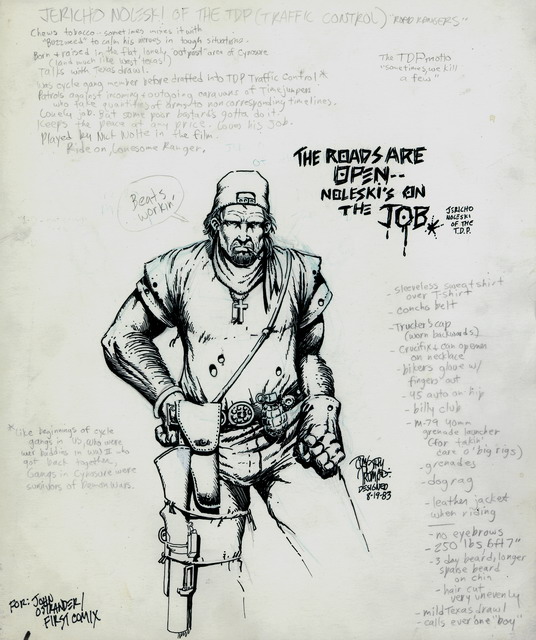 JERICHO NOLESKI OF THE TDP (TRAFFIC CONTROL) "ROAD RANGERS"
Chews tobacco - sometimes mixes it with
"Buzzweed" to calm his nerves in tough situations.
Born + raised in the flat, lonely, "outpost" area of Cynosure
(Lond much like West Texas!)
Talks with Texas drawl.
Was cycle gang member before drafted into TDP Traffic Control*
Patrols against incoming + outgoing caravans of Timejumpers
who take quantities of drugs to non corresponding timelines.
Lonely job. But some poor bastard's gotta do it.
Keeps the peace at any price. Loves his job.
Played by Nick Nolte in the film.
Ride on, Lonesome Ranger.
The TDP motto
"sometimes, we kill
a few"
THE ROADS ARE
OPEN--
NOLESKI'S ON
THE JOB*
JERICHO
NOLESKI
OF THE
T.D.P.
Beats
workin'
- sleeveless sweatshirt
over T-shirt
- concho belt
- Trucker's cap
(worn backwards)
- Crucifix + can opener
on necklace
- bikers glove w/
fingers out
- 45 auto on hip
- billy club
- M-79 40mm
grenade launcher
(for takin'
care o' big rigs)
- grenades
- dograg
- leather jacket
when riding
- no eyebrows
- 250 lbs 6ft 7"
- 3 day beard, longer
sparse beard
on chin
- hair cut
very unevenly
- mild Texas drawl
- calls everyone "boy"
*like beginnings of cycle
gangs in US, who were
war buddies in WW II to
get back together,
Gangs in Cynosure were
survivors of Demon Wars.
TIMOTHY
TRUMAN
DESIGNED
8-19-83
FOR: JOHN
OSTRANDER/
FIRST COMIX